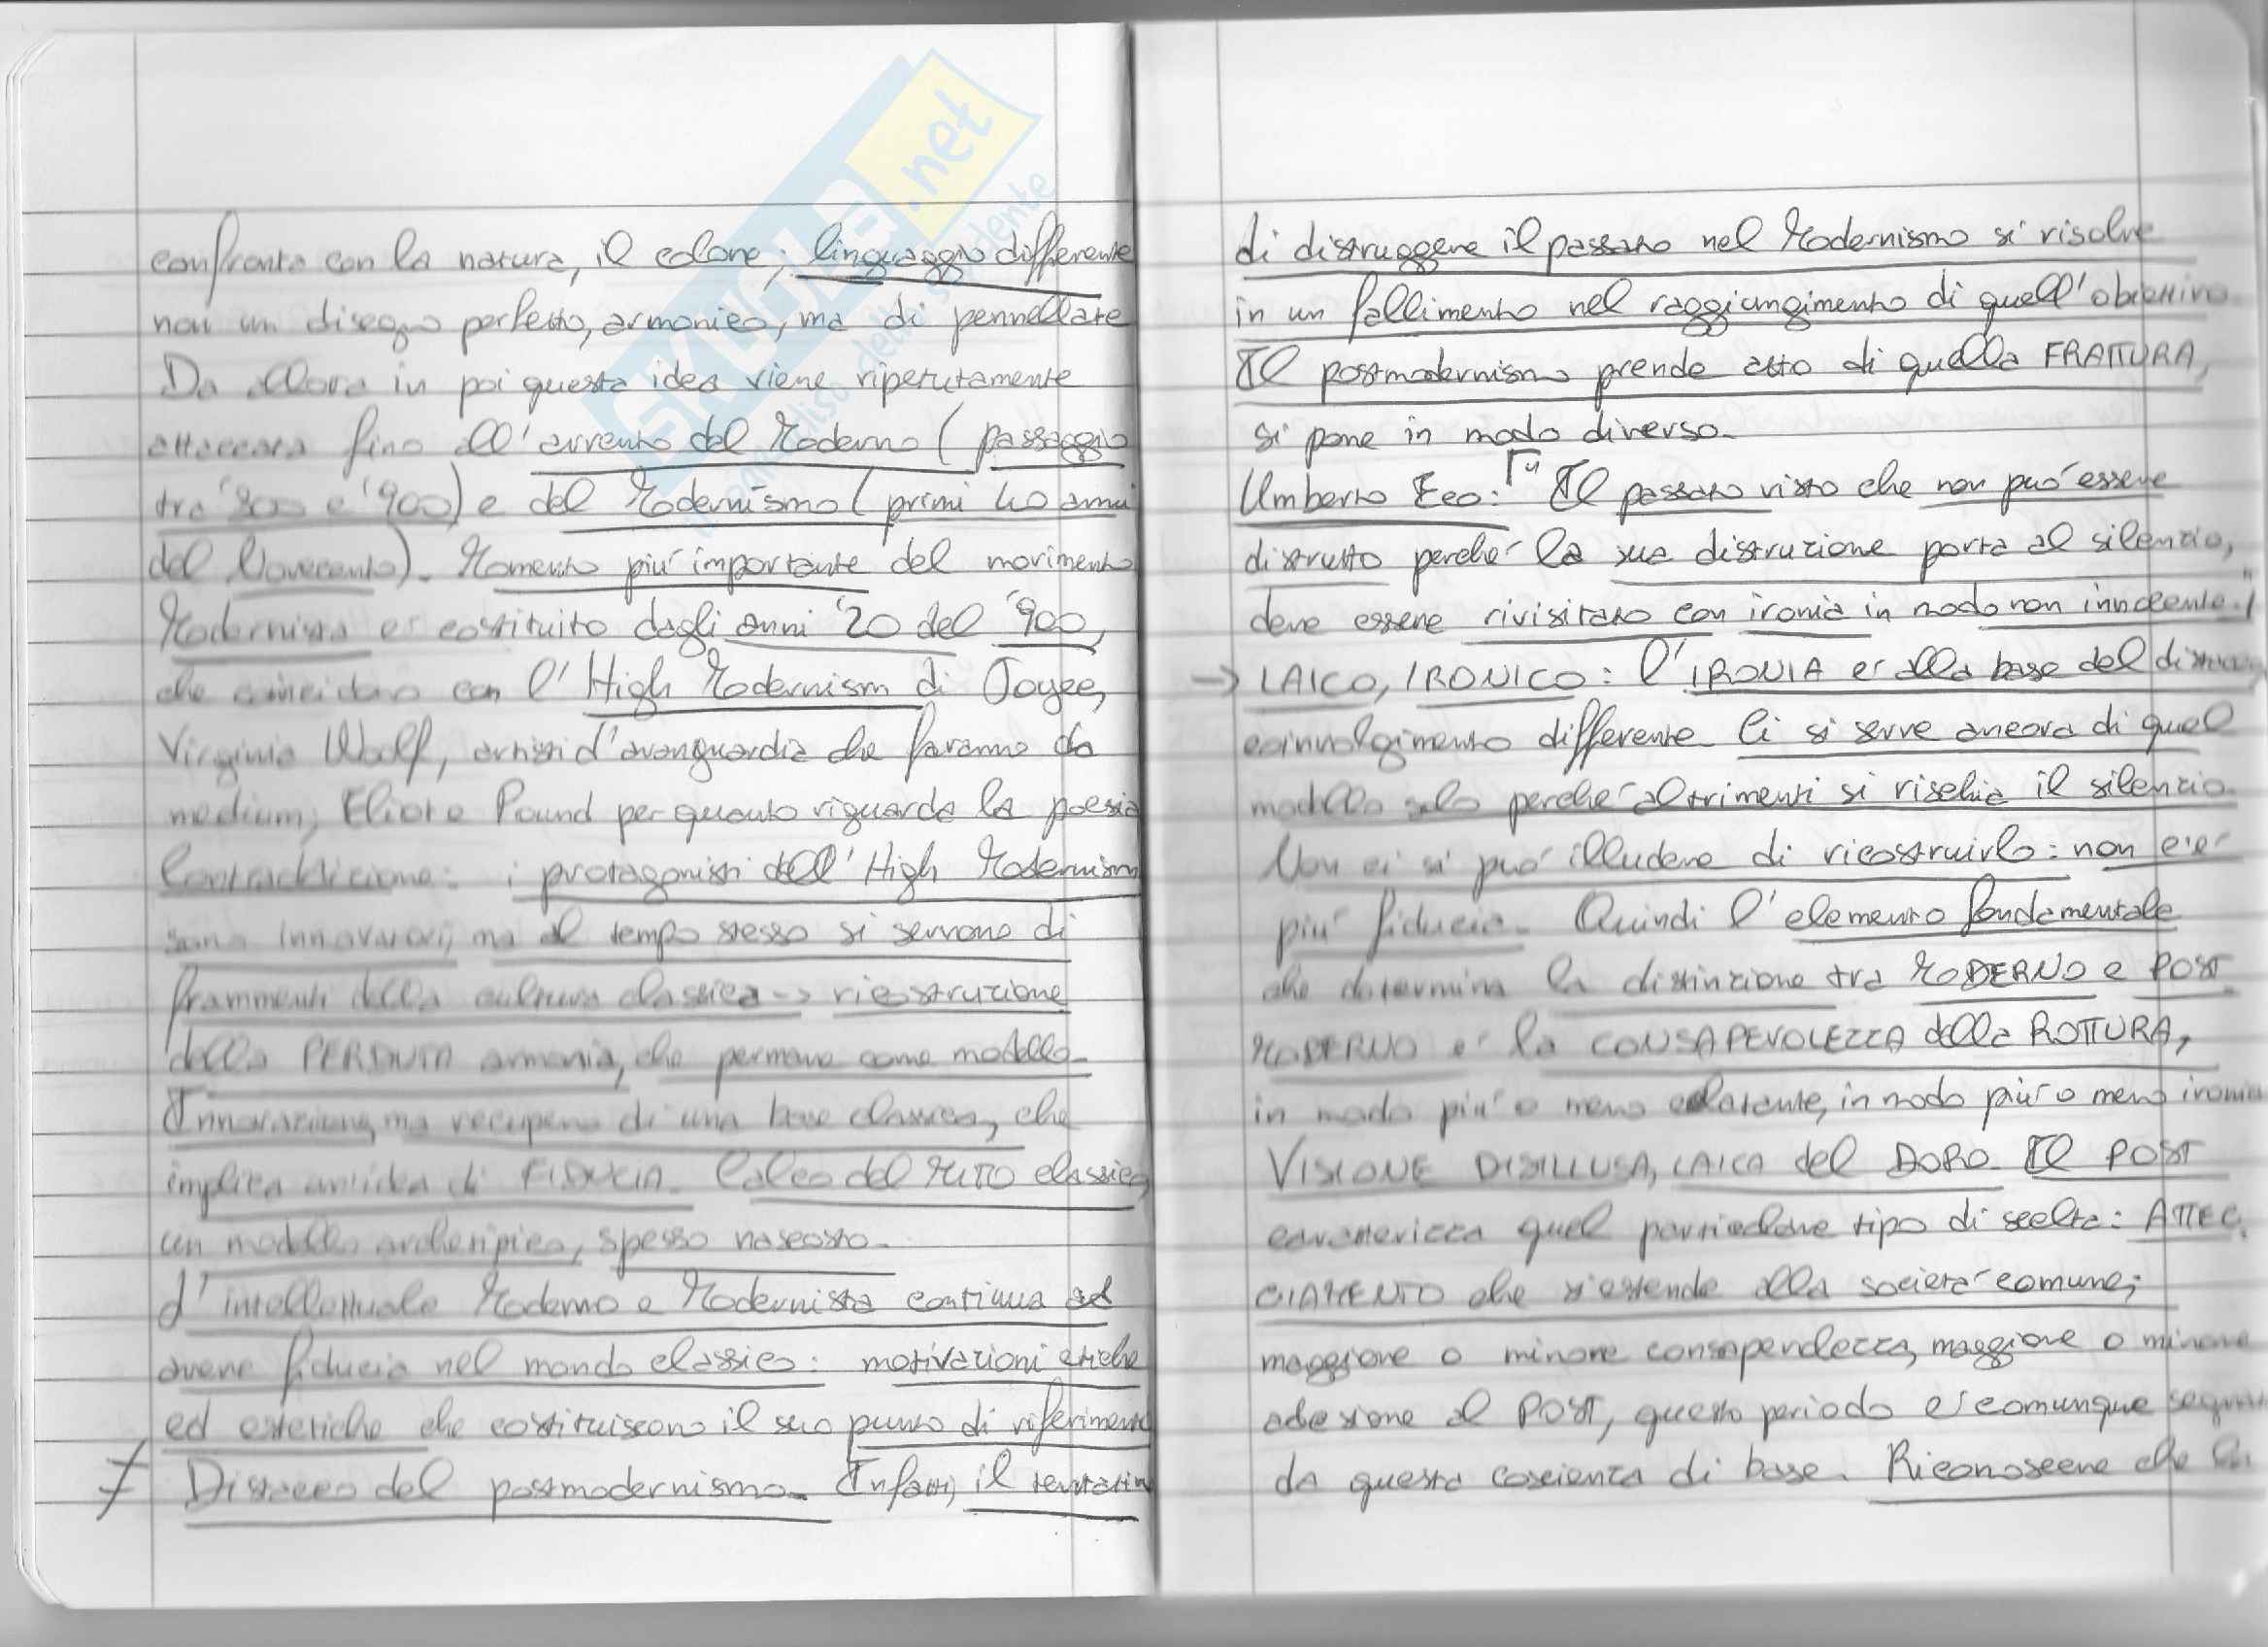 confronta con la natura, il colore; linguaggio differente
non un disegno perfetto, armonico, ma di pennellate
Da allora in poi questa idea viene ripetutamente
attaccata fino all'avvento del Moderno (passaggio
tra '800 e '900) e del Modernismo (primi 40 anni
del Novecento). Momento più importante del movimento
Modernista è costituito dagli anni '20 del '900,
che coincidono con l'High Modernism di Joyce,
Virginia Woolf, artisti d'avanguardia che faranno da
medium; Eliot e Pound per quanto riguarda la poesia
Contraddizione: i protagonisti dell'High Modernism
sono innovatori, ma al tempo stesso si servono di
frammenti della cultura classica -> ricostruzione
della PERDUTA armonia, che permane come modello.
Innovazione, ma recupero di una base classica, che
implica un'idea di FIDUCIA. Calco del MITO classico,
un modello archetipico, spesso nascosto.
L'intellettuale Moderno e Modernista continua ad
avere fiducia nel mondo classico: motivazioni etiche
ed estetiche che costituiscono il suo punto di riferimento
≠ Distacco del postmodernismo. Infatti, il tentativo
di distruggere il passato nel Modernismo si risolve
in un fallimento nel raggiungimento di quell'obiettivo
Il postmodernismo prende atto di quella FRATTURA,
si pone in modo diverso.
Umberto Eco: "Il passato visto che non può essere
distrutto perché la sua distruzione porta al silenzio,
deve essere rivisitato con ironia in modo non innocente."
-> LAICO, IRONICO: l'IRONIA è alla base del distacco,
coinvolgimento differente. Ci si serve ancora di quel
modello solo perché altrimenti si rischia il silenzio.
Non ci si può illudere di ricostruirlo: non c'è
più fiducia. Quindi l'elemento fondamentale
che determina la distinzione tra MODERNO e POST
MODERNO è la CONSAPEVOLEZZA della ROTTURA,
in modo più o meno eclatante, in modo più o meno ironico
VISIONE DISILLUSA, LAICA del DOPO. Il POST
caratterizza quel particolare tipo di scelta: ATTEG.
GIAMENTO che s'estende alla società comune;
maggiore o minore consapevolezza, maggiore o minore
adesione al POST, questo periodo è comunque segnato
da questa coscienza di base. Riconoscere che la
SKUOLA.net